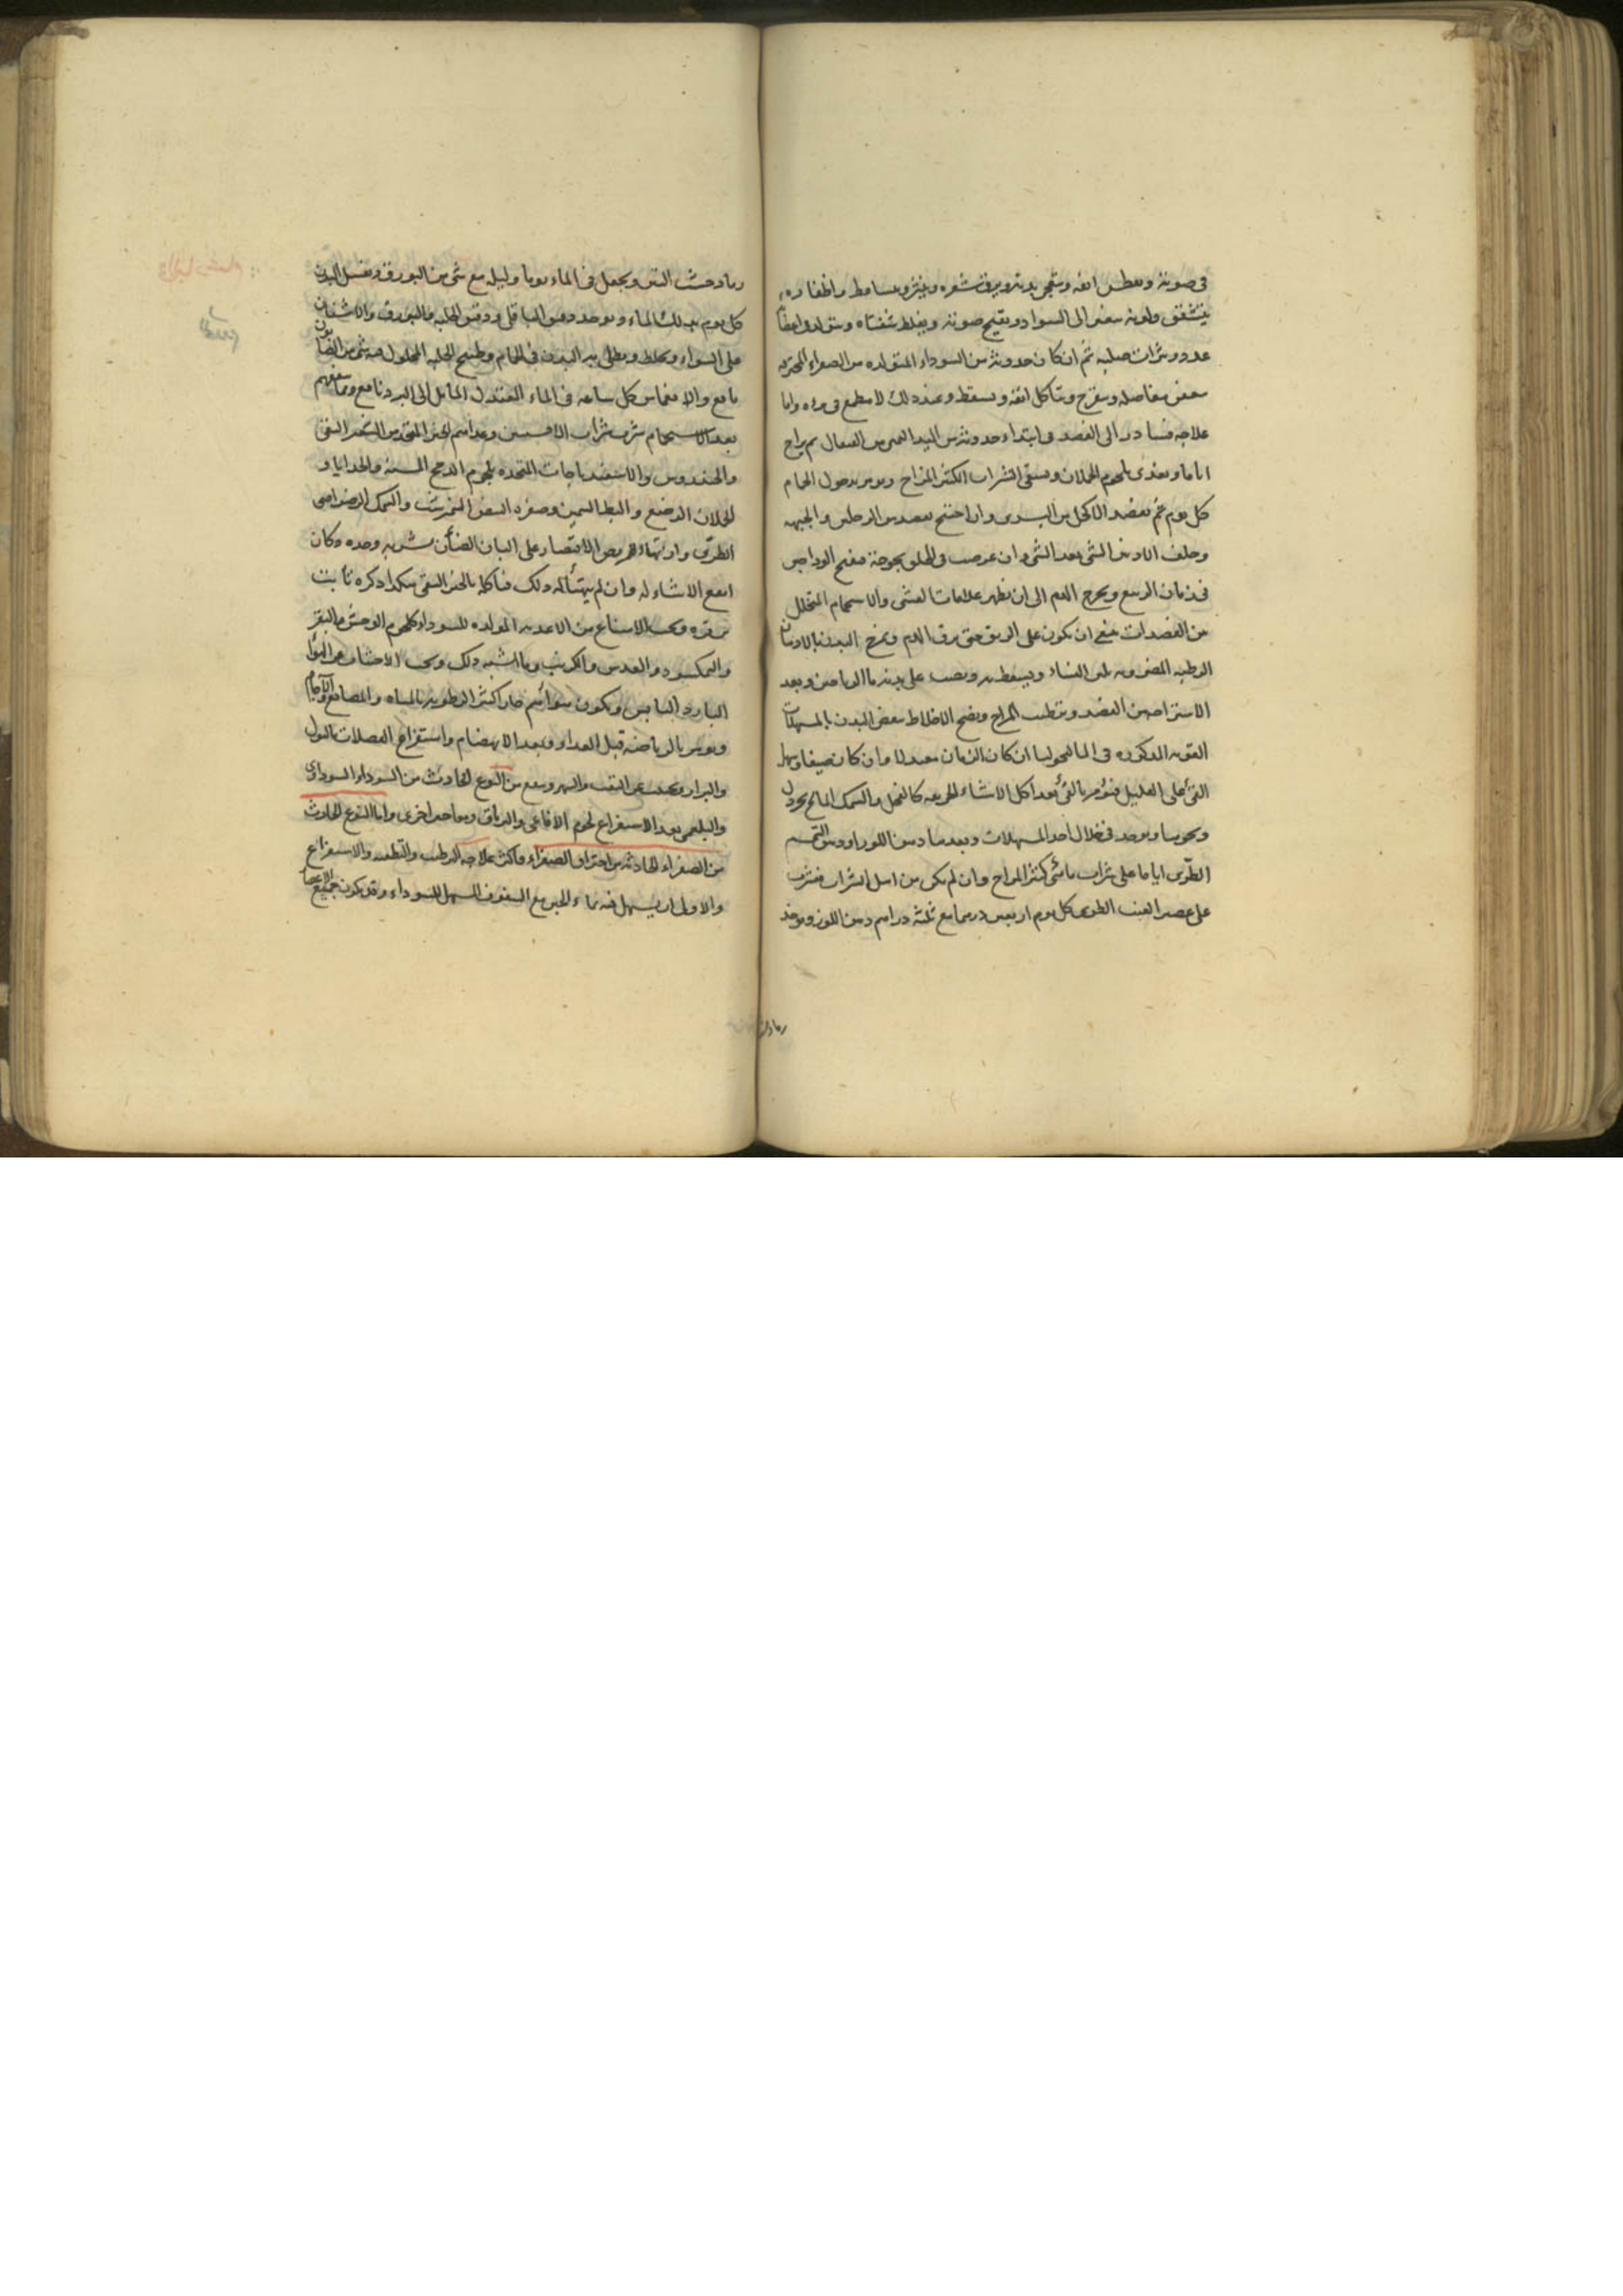 في صوته وتفطس انفه وتتعجر بدنه ويرق شعره وينثر ويتساقط واظفاره
يتشقق ولونه يتغير الى السواد ويقبح صوته ويغلظ شفتاه ويتولد في اعضائه
غدد وبثرات صلبة ثم ان كان حدوثه من السوداء المتولده من الصفراء المحترقه
تعفن مفاصله وتقرح ويتأكل انفه ويسقط وعند ذلك لا مطمع في برئه واما
علاجه فيبادر الى الفصد في ابتداء حدوثه من اليد اليمنى من القيفال ثم يراح
اياما ويغذى بلحوم الحملان ويسقى الشراب الكثير المزاج ويؤمر بدخول الحمام
كل يوم ثم يفصد الاكحل من اليسرى وان احتيج يفصد من الرجلين والجبهه
وخلف الاذن الشئ بعد الشئ وان عرضت في الحلق بحوحة فيفتح الوداجين
في زمان الربيع ويخرج الدم الى ان يظهر علامات الغشى والاستحمام المتخلل
من الفصدات ينبغي ان يكون على الريق حتى يرق الدم ويمرخ البدن بالادهان
الرطبه المضروبه بلبن النساء ويسعط به ويصب على بدنه ماء الرياحين وبعد
الاستراحه من الفصد وترطيب المزاج ونضج الاخلاط ينفض البدن بالمسهلات
القويه المذكوره في الماليخوليا ان كان الزمان معتدلا وان كان صيفا وسهل
القئ على العليل فيؤمر بالقئ بعد اكل الاشياء الحريفه كالفجل والسمك المالح والخردل
ونحوها ويؤخذ في خلال احد المسهلات وبعدها دهن اللوز او دهن السمسم
الطري اياما على شراب مائى كثير المزاج وان لم يكن من اهل الشراب فيشرب
على عصير العنب الطرى كل يوم اربعين درهما مع ثلثة دراهم دهن اللوز ويؤخذ
رماد خشب
رماد خشب التين ويجعل في الماء يوما وليلة مع شئ من البورق ويغسل البدن
كل يوم بذلك الماء ويؤخذ دقيق الباقلى ودقيق الحلبه والبورق والاشنان
على السواء ويخلط ويطلى به البدن في الحمام وطبيخ الحلبه المحلول فيه شئ من الصابون
نافع والانغماس كل ساعه في الماء المعتدل المائل الى البرد نافع ومما ينفعهم
بعد الاستحمام شرب شراب الافسنتين وغذاهم الخبز المتخذ من الشعير النقى
والخندروس والاسفيدباجات المتخذه بلحوم الدجاج المسمنه والجدايا و
الحملان الرضع والبط السمين وصفره البيض النيمرشت والسمك الرضراضى
الطرى وان تهيأ للمريض الاقتصار على البان الضأن بشربه وحده وكان
انفع الاشياء له وان لم يتهيأ له ذلك فيأكله بالخبز النقى هكذا ذكره ثابت
بن قره ويجب الامتناع من الاغذيه المولده للسوداء كلحوم الوحش والبقر
والنمكسود والعدس والكرنب وما اشبه ذلك ويجب الاجتناب عن الهواء
البارد اليابس ويكون هوائهم حار اكثير الرطوبه بالمياه والمصانع والآجام
ويؤمر بالرياضه قبل الغداء وبعد الانهضام واستفراغ الفضلات بالبول
والبراز ويجتنب عن التعب والسهر وينفع من النوع الحادث من السوداء السوداوى
والبلغمى بعد الاستفراغ لحوم الافاعى والترياق ومعاجين اخرى واما النوع الحادث
من الصفراء الحادثه من احتراق الصفراء فاكثر علاجه الترطيب والتطفيه والاستفراغ
والاولى ان يسهل فيه بماء الجبن مع السفوف المسهل للسوداء وقد يكون جميع الاعضاء